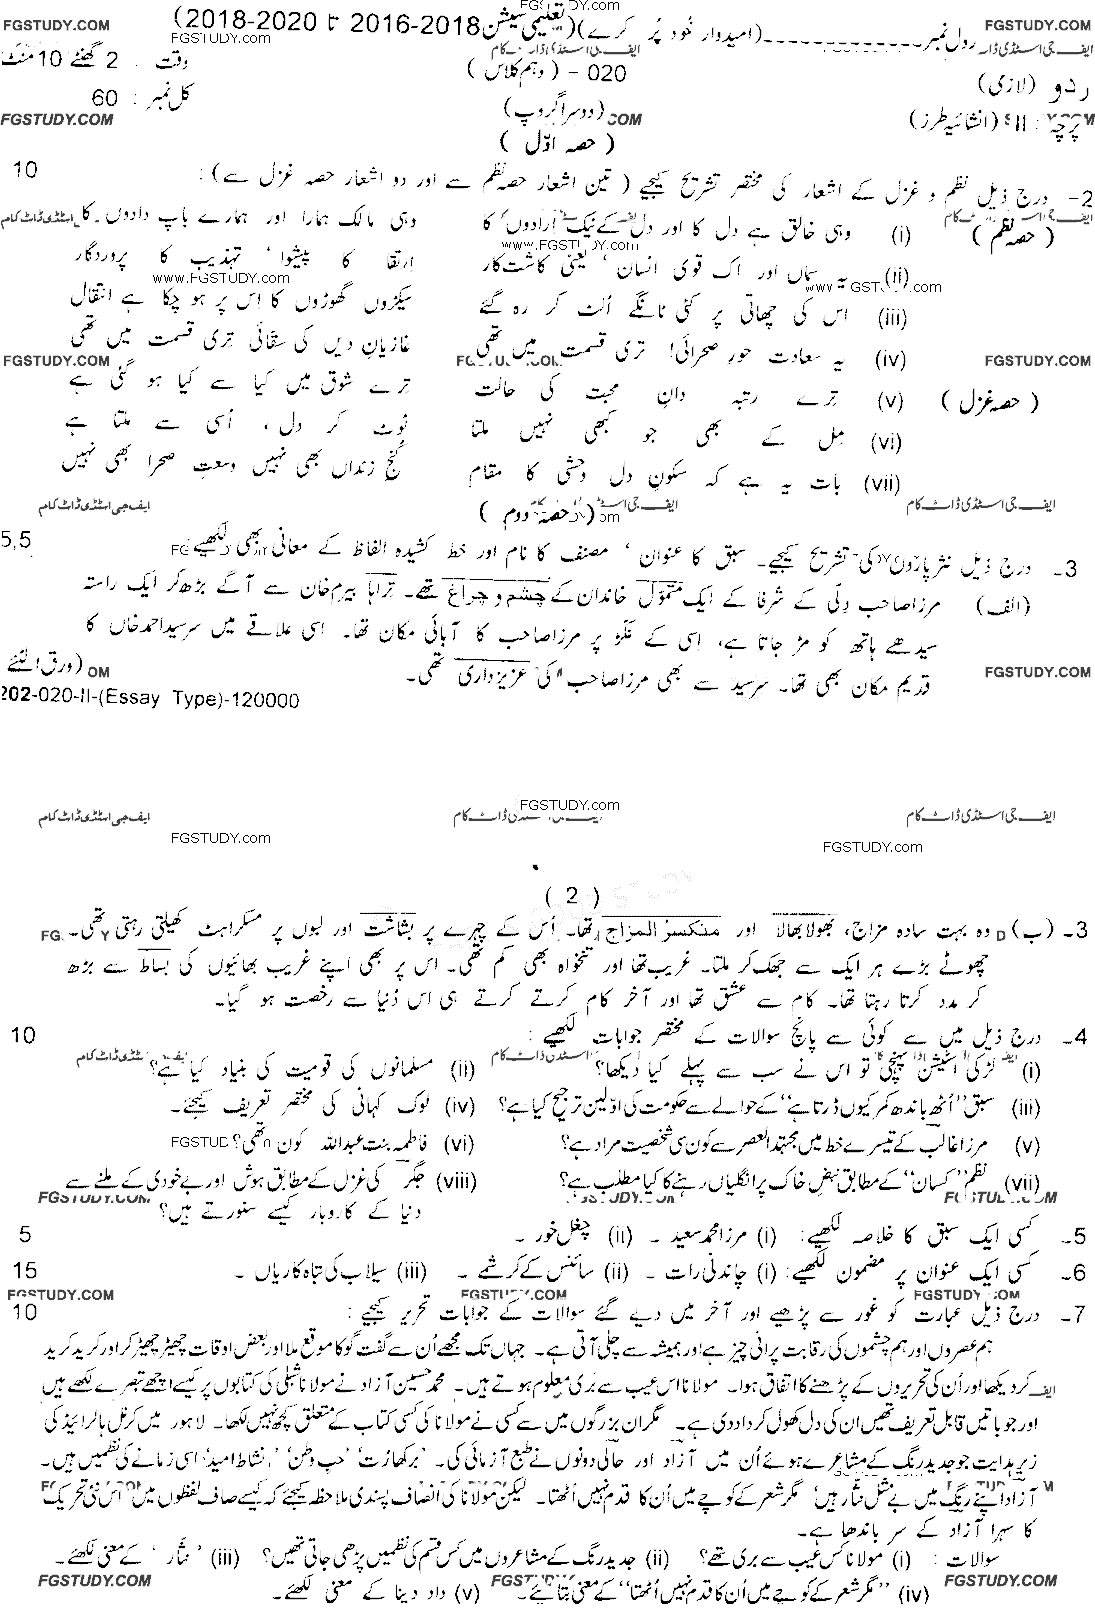 FGSTUDY.com
FGSTUDY.COM رول نمبر ـــــــــــــ (امیدوار خود پُر کرے) (تعلیمی سیشن 2016-2018 تا 2018-2020) FGSTUDY.COM
FGSTUDY.com
ایف جی اسٹڈی ڈاٹ کام
اردو (لازمی) 020 - (دہم کلاس) وقت : 2 گھنٹے 10 منٹ
پرچہ : II (انشائیہ طرز) (دوسرا گروپ) کل نمبر : 60
FGSTUDY.COM
( حصہ اوّل )
2- درج ذیل نظم و غزل کے اشعار کی مختصر تشریح کیجیے ( تین اشعار حصہ نظم سے اور دو اشعار حصہ غزل سے) : 10
( حصہ نظم ) (i) وہی خالق ہے دل کا اور دل کے نیک ارادوں کا وہی مالک ہمارا اور ہمارے باپ دادوں کا
www.FGSTUDY.com
(ii) یہ سماں اور اک قوی انسان ' یعنی کاشت کار ارتقا کا پیشوا ' تہذیب کا پروردگار
www.FGSTUDY.com
(iii) اس کی چھاتی پر کئی تانگے اُلٹ کر رہ گئے سیکڑوں گھوڑوں کا اس پر ہو چکا ہے انتقال
(iv) یہ سعادت حورِ صحرائی! تری قسمت میں تھی غازیانِ دیں کی سقّائی تری قسمت میں تھی
FGSTUDY.COM FGSTUDY.COM
( حصہ غزل ) (v) ترے رتبہ دانِ محبت کی حالت ترے شوق میں کیا سے کیا ہو گئی ہے
(vi) مِل کے بھی جو کبھی نہیں ملتا ٹوٹ کر دل ، اُسی سے ملتا ہے
(vii) بات یہ ہے کہ سکونِ دل وحشی کا مقام کُنجِ زنداں بھی نہیں وسعتِ صحرا بھی نہیں
ایف جی اسٹڈی ڈاٹ کام ایف جی اسٹڈی ڈاٹ کام ایف جی اسٹڈی ڈاٹ کام
( حصہ دوم )
3- درج ذیل نثر پاروں کی تشریح کیجیے۔ سبق کا عنوان ' مصنف کا نام اور خط کشیدہ الفاظ کے معانی بھی لکھیے 5,5
(الف) مرزا صاحب دِلّی کے شرفا کے ایک متموّل خاندان کے چشم و چراغ تھے۔ تراہا بیرم خان سے آگے بڑھ کر ایک راستہ
سیدھے ہاتھ کو مڑ جاتا ہے، اسی کے نکڑ پر مرزا صاحب کا آبائی مکان تھا۔ اسی علاقے میں سرسید احمد خاں کا
قدیم مکان بھی تھا۔ سرسید سے بھی مرزا صاحب کی عزیز داری تھی۔ (ورق الٹئے
FGSTUDY.COM
202-020-II-(Essay Type)-120000
FGSTUDY.com
ایف جی اسٹڈی ڈاٹ کام ایف جی اسٹڈی ڈاٹ کام
FGSTUDY.com FGSTUDY.com
( 2 )
3- (ب) وہ بہت سادہ مزاج، بھولا بھالا اور منکسرُ المزاج تھا۔ اُس کے چہرے پر بشاشت اور لبوں پر مسکراہٹ کھیلتی رہتی تھی۔
چھوٹے بڑے ہر ایک سے جھک کر ملتا۔ غریب تھا اور تنخواہ بھی کم تھی۔ اس پر بھی اپنے غریب بھائیوں کی بساط سے بڑھ
کر مدد کرتا رہتا تھا۔ کام سے عشق تھا اور آخر کام کرتے کرتے ہی اس دُنیا سے رخصت ہو گیا۔
4- درج ذیل میں سے کوئی سے پانچ سوالات کے مختصر جوابات لکھیے : 10
(i) لڑکی اسٹیشن پہنچی تو اس نے سب سے پہلے کیا دیکھا؟ (ii) مسلمانوں کی قومیت کی بنیاد کیا ہے؟
(iii) سبق "اُٹھ باندھ کمر کیوں ڈرتا ہے" کے حوالے سے حکومت کی اوّلین ترجیح کیا ہے؟ (iv) لوک کہانی کی مختصر تعریف کیجئے۔
(v) مرزا غالب کے تیسرے خط میں مجتہد العصر سے کون سی شخصیت مراد ہے؟ (vi) فاطمہ بنت عبداللہ کون تھی؟
(vii) نظم "کسان" کے مطابق نبضِ خاک پر انگلیاں رہنے کا کیا مطلب ہے؟ (viii) جگر کی غزل کے مطابق ہوش اور بے خودی کے ملنے سے
دنیا کے کاروبار کیسے سنورتے ہیں؟
5- کسی ایک سبق کا خلاصہ لکھیے: (i) مرزا محمد سعید ۔ (ii) چغل خور ۔ 5
6- کسی ایک عنوان پر مضمون لکھیے: (i) چاندنی رات ۔ (ii) سائنس کے کرشمے ۔ (iii) سیلاب کی تباہ کاریاں ۔ 15
FGSTUDY.COM FGSTUDY.COM FGSTUDY.COM
7- درج ذیل عبارت کو غور سے پڑھیے اور آخر میں دیے گئے سوالات کے جوابات تحریر کیجیے : 10
ہم عصروں اور ہم چشموں کی رقابت پرانی چیز ہے اور ہمیشہ سے چلی آتی ہے۔ جہاں تک مجھے اُن سے گفت گو کا موقع ملا اور بعض اوقات چھیڑ چھیڑ کر اور کرید کرید
کر دیکھا اور اُن کی تحریروں کے پڑھنے کا اتفاق ہوا۔ مولانا اس عیب سے بَری معلوم ہوتے ہیں۔ محمد حسین آزاد نے مولانا شبلی کی کتابوں پر کیسے اچھے تبصرے لکھے ہیں
اور جو باتیں قابل تعریف تھیں ان کی دل کھول کر داد دی ہے۔ مگر ان بزرگوں میں سے کسی نے مولانا کی کسی کتاب کے متعلق کچھ نہیں لکھا۔ لاہور میں کرنل ہالرائیڈ کی
زیرِ ہدایت جو جدید رنگ کے مشاعرے ہوئے اُن میں آزاد اور حالی دونوں نے طبع آزمائی کی۔ 'برکھا رُت' 'حبِ وطن'، 'نشاطِ امید' اسی زمانے کی نظمیں ہیں۔
آزاد اپنے رنگ میں بے مثل نثار ہیں' مگر شعر کے کوچے میں اُن کا قدم نہیں اُٹھتا۔ لیکن مولانا کی انصاف پسندی ملاحظہ کیجئے کہ کیسے صاف لفظوں میں اس نئی تحریک
کا سہرا آزاد کے سر باندھا ہے۔
سوالات : (i) مولانا کس عیب سے بری تھے؟ (ii) جدید رنگ کے مشاعروں میں کس قسم کی نظمیں پڑھی جاتی تھیں؟ (iii) ' نثّار ' کے معنی لکھئے۔
(iv) "مگر شعر کے کوچے میں اُن کا قدم نہیں اُٹھتا" کے معنی بتائیے۔ (v) داد دینا کے معنی لکھئے۔
FGSTUDY.COM FGSTUDY.COM FGSTUDY.COM